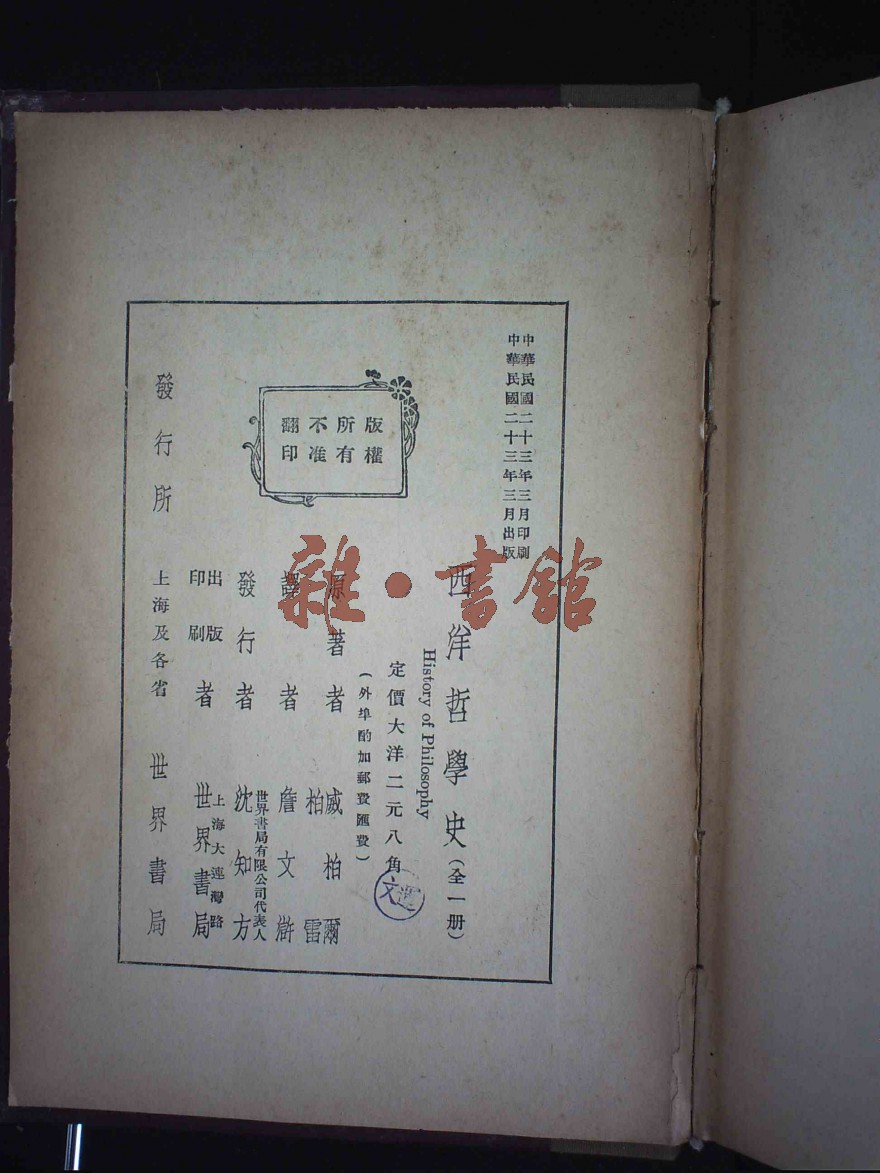 中華民國二十三年三月印刷
中華民國二十三年三月出版
版權所有
不准翻印
西洋哲學史(全一册)
History of Philosophy
定價大洋二元八角
(外埠酌加郵費匯費)
原著者 威柏爾
柏雷
譯者 詹文滸
發行者 世界書局有限公司代表人
沈知方
出版
印刷
者 上海大連灣路
世界書局
發行所 上海及各省 世界書局
雜·書館